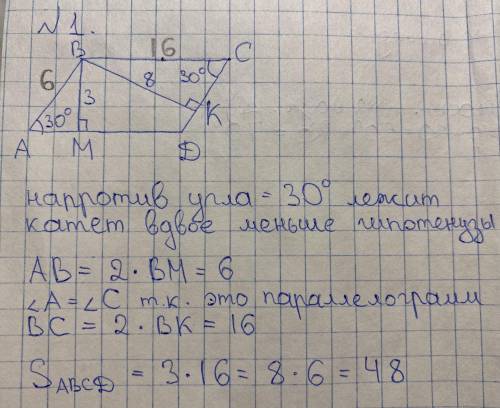 №1.
16
B
C
6
8
30°
3
30°
K
A
M
D
напротив угла = 30° лежит
катет вдвое меньше гипотенузы
AB = 2 · BM = 6
∠A = ∠C т.к. это параллелограмм
BC = 2 · BK = 16
S_ABCD = 3 · 16 = 8 · 6 = 48